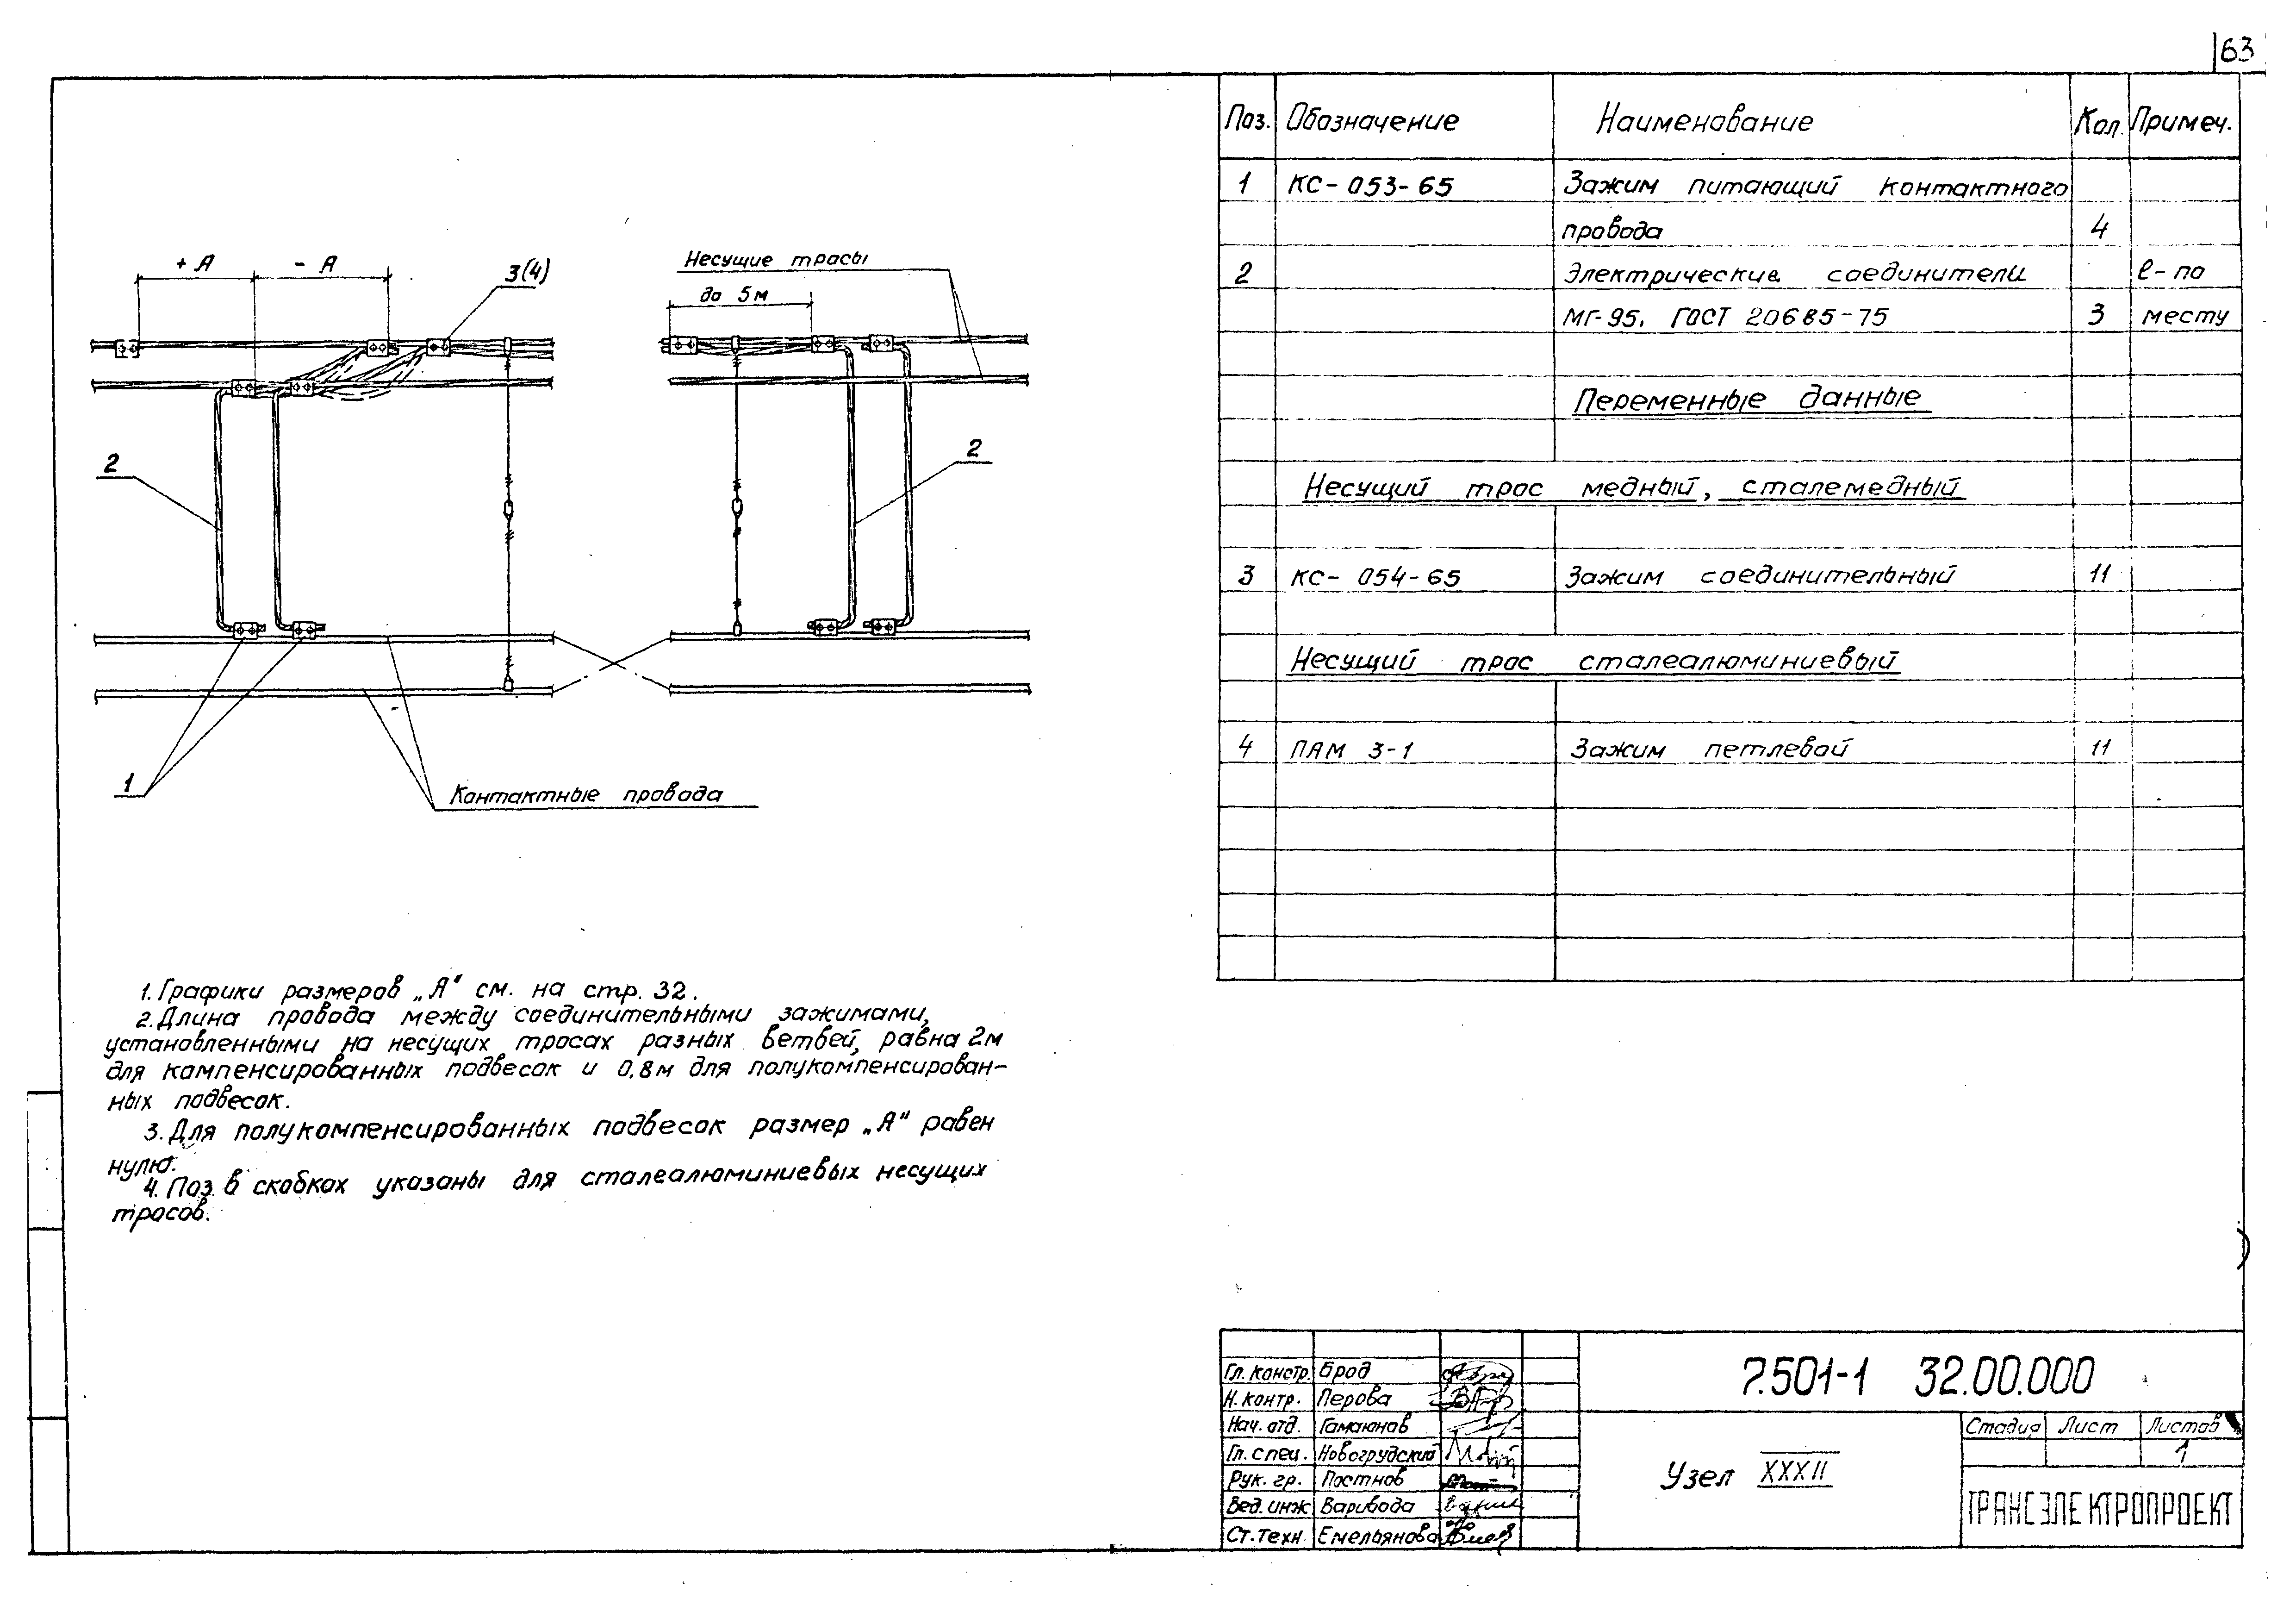 63
+ А
- А
3(4)
Несущие тросы
до 5м
2
2
1
Контактные провода
1. Графики размеров „А" см. на стр. 32.
2. Длина провода между соединительными зажимами,
установленными на несущих тросах разных ветвей, равна 2м
для компенсированных подвесок и 0,8м для полукомпенсирован-
ных подвесок.
3. Для полукомпенсированных подвесок размер „А" равен
нулю.
4. Поз. в скобках указаны для сталеалюминиевых несущих
тросов.
Поз. Обозначение Наименование Кол. Примеч.
1 КС-053-65 Зажим питающий контактного
провода 4
2 Электрические соединители ℓ-по
МГ-95. ГОСТ 20685-75 3 месту
Переменные данные
Несущий трос медный, сталемедный
3 КС-054-65 Зажим соединительный 11
Несущий трос сталеалюминиевый
4 ПАМ 3-1 Зажим петлевой 11
Гл. констр. Брод
Н. контр. Перова
Нач. отд. Гамаюнов
Гл. спец. Новогрудский
Рук. гр. Постнов
Вед. инж Варивода
Ст. техн. Емельянова
7.501-1 32.00.000
Узел XXXII
Стадия Лист Листов
1
ТРАНСЭЛЕКТРОПРОЕКТ